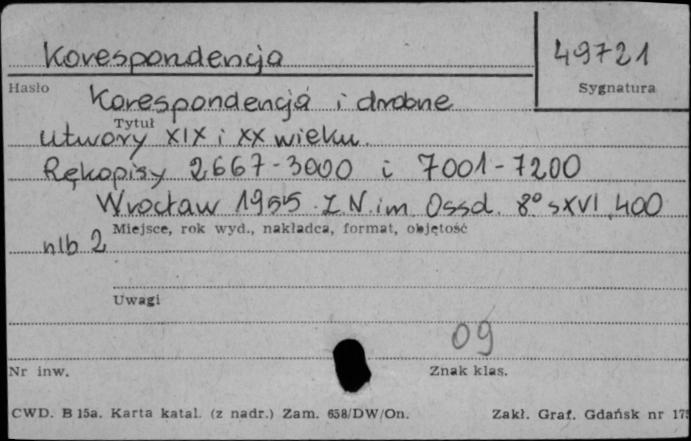 Korespondencja
49721
Hasło
Sygnatura
Korespondencja i drobne
Tytuł
utwory XIX i XX wieku.
Rękopisy 2667-3000 i 7001-7200
Wrocław 1955 Z.N. im. Ossol. 8° s XVI, 400
Miejsce, rok wyd., nakładca, format, objętość
nlb 2
Uwagi
09
Nr inw.
Znak klas.
CWD. B 15a. Karta katal. (z nadr.) Zam. 658/DW/On.
Zakł. Graf. Gdańsk nr